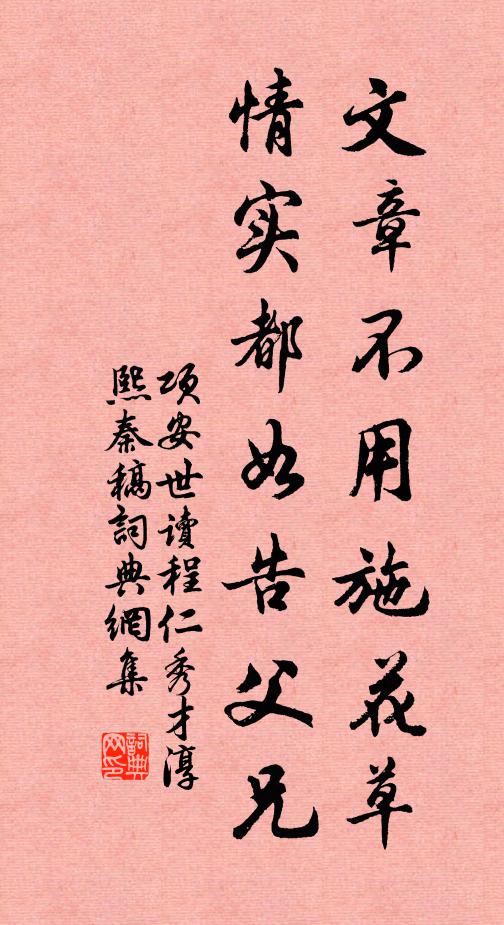 文章不用施花草
情实都如告父兄
项安世读程仁秀才淳
熙秦稿詞典網集
詞典网印